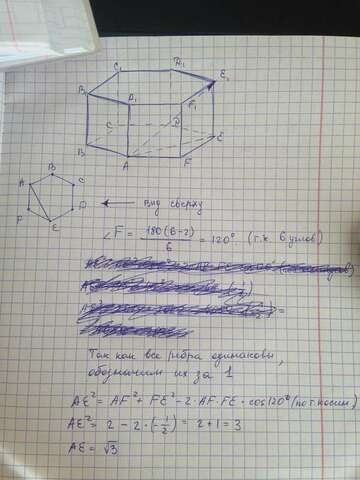 C₁ D₁ E₁
B₁ A₁ F₁
C D E
B A F
B
A C
F D
E
Вид сверху
∠F = 180(6-2)/6 = 120° (т.к 6 углов)
Так как все ребра одинаковы,
обозначим их за 1
AE² = AF² + FE² - 2 · AF · FE · cos120° (по т.косин.)
AE² = 2 - 2 · (-1/2) = 2 + 1 = 3
AE = √3